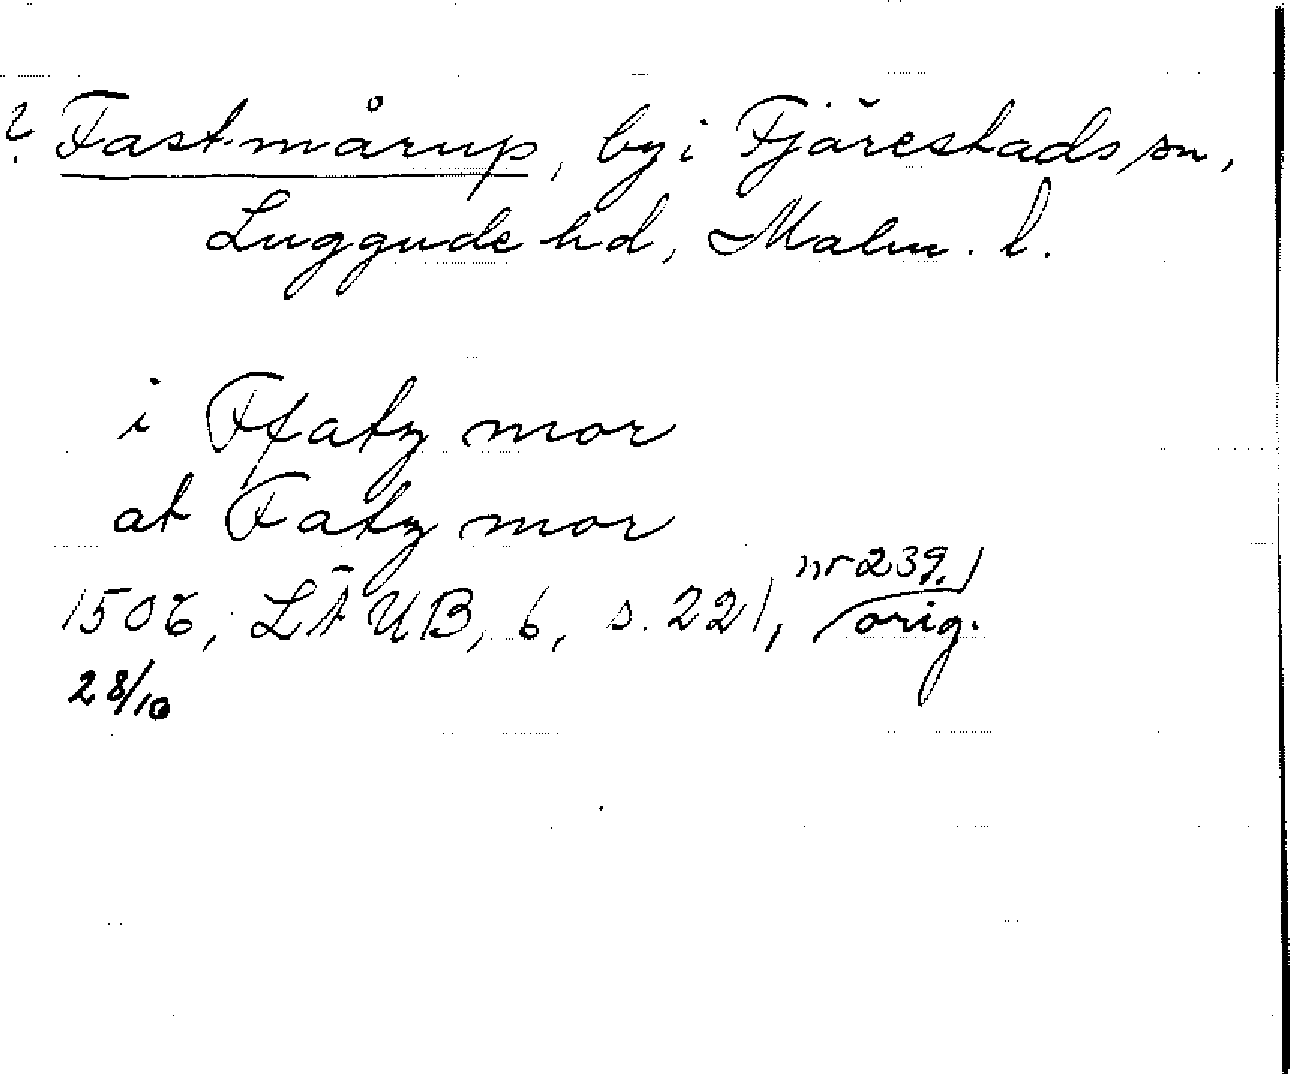 ? Fastmårup, by i Fjärestads sn,
Luggude hd, Malm. l.
i Ffatz mor
at Fatz mor
1506, LÄUB, 6, s. 221, nr 239, orig.
28/10